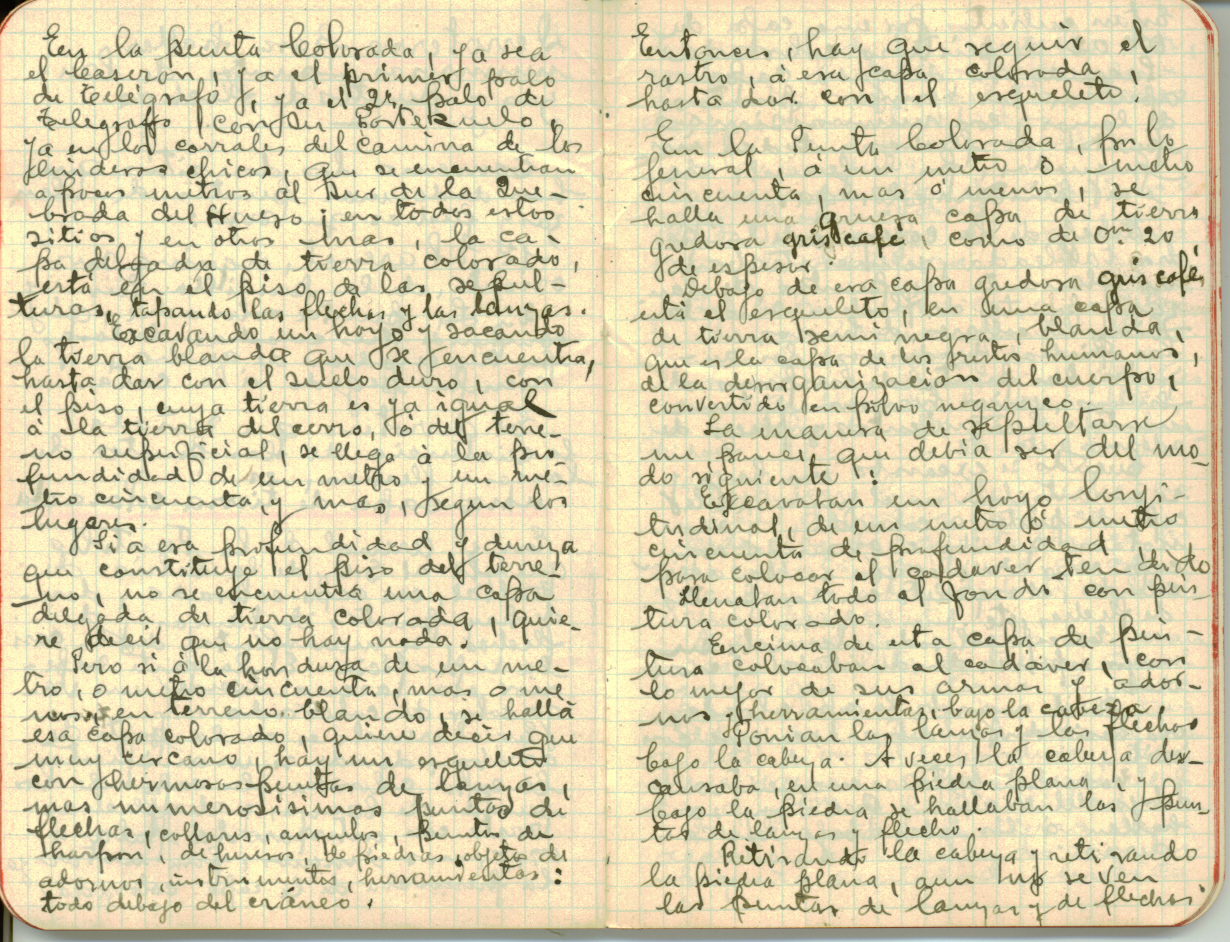 En la punta Colorada, ya sea
el Caserón, ya el primer palo
de telégrafo, ya el 2º palo de
telégrafo con su Portezuelo,
ya en los corrales del camino de los
flinderos chicos, que se encuentran
a pocos metros al Sur de la Que-
brada del Hueso; en todos estos
sitios y en otros mas, la ca-
pa delgada de tierra colorada,
está en el piso de las sepul-
turas, tapando las flechas y las lanzas.
Excavando un hoyo y sacando
la tierra blanda que se encuentra,
hasta dar con el suelo duro, con
el piso, cuya tierra es ya igual
á la tierra del cerro, ó del terre-
no superficial, se llega á la pro-
fundidad de un metro y un me-
tro cincuenta, y mas, segun los
lugares.
Si á esa profundidad y dureza
que constituye el piso del terre-
no, no se encuentra una capa
delgada de tierra colorada, quie-
re decir que no hay nada.
Pero si á la hondura de un me-
tro, o metro cincuenta, mas o me
nos, en terreno blando, se halla
esa capa colorada, quiere decir que
muy cercano, hay un esqueleto
con hermosas puntas de lanzas,
mas numerosisimas puntas de
flechas, collares, anzuelos, puntas de
harpon, de huesos, de piedras, objetos de
adornos, instrumentos, herramientas:
todo debajo del cráneo.
Entonces, hay que seguir el
rastro, á esa capa colorada,
hasta dar con el esqueleto.
En la Punta Colorada, por lo
general, á un metro ó metro
cincuenta, mas ó menos, se
halla una gruesa capa de tierra
gredosa gris café, como de 0m. 20
de espesor.
Debajo de esa capa gredosa gris café,
está el esqueleto, en una capa
de tierra semi negra, blanda,
que es la capa de los restos humanos,
de la desorganización del cuerpo,
convertido en polvo negruzco.
La manera de sepultarse
me parece que debia ser del mo-
do siguiente:
Excavaban un hoyo longi-
tudinal, de un metro ó metro
cincuenta de profundidad
para colocar el cadaver tendido
Llenaban todo el fondo con pin
tura colorado.
Encima de esta capa de pin-
tura colocaban al cadáver, con
lo mejor de sus armas y ador-
nos y herramientas, bajo la cabeza
Ponian las lanzas y las flechas
bajo la cabeza. A veces la cabeza des-
cansaba, en una piedra plana, y
bajo la piedra se hallaban las pun-
tas de lanzas y flecha.
Retirando la cabeza y retirando
la piedra plana, aun no se ven
las puntas de lanzas y de flechas